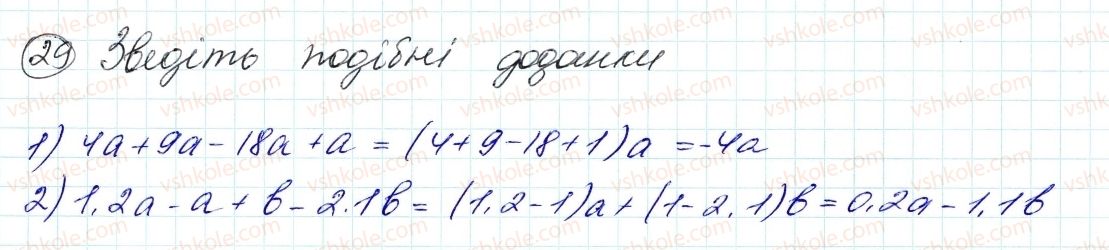 29 Зведіть подібні доданки
1) 4a+9a-18a+a = (4+9-18+1)a =-4a
2) 1,2a-a+b-2.1b= (1,2-1)a+(1-2,1)b=0,2a-1,1b